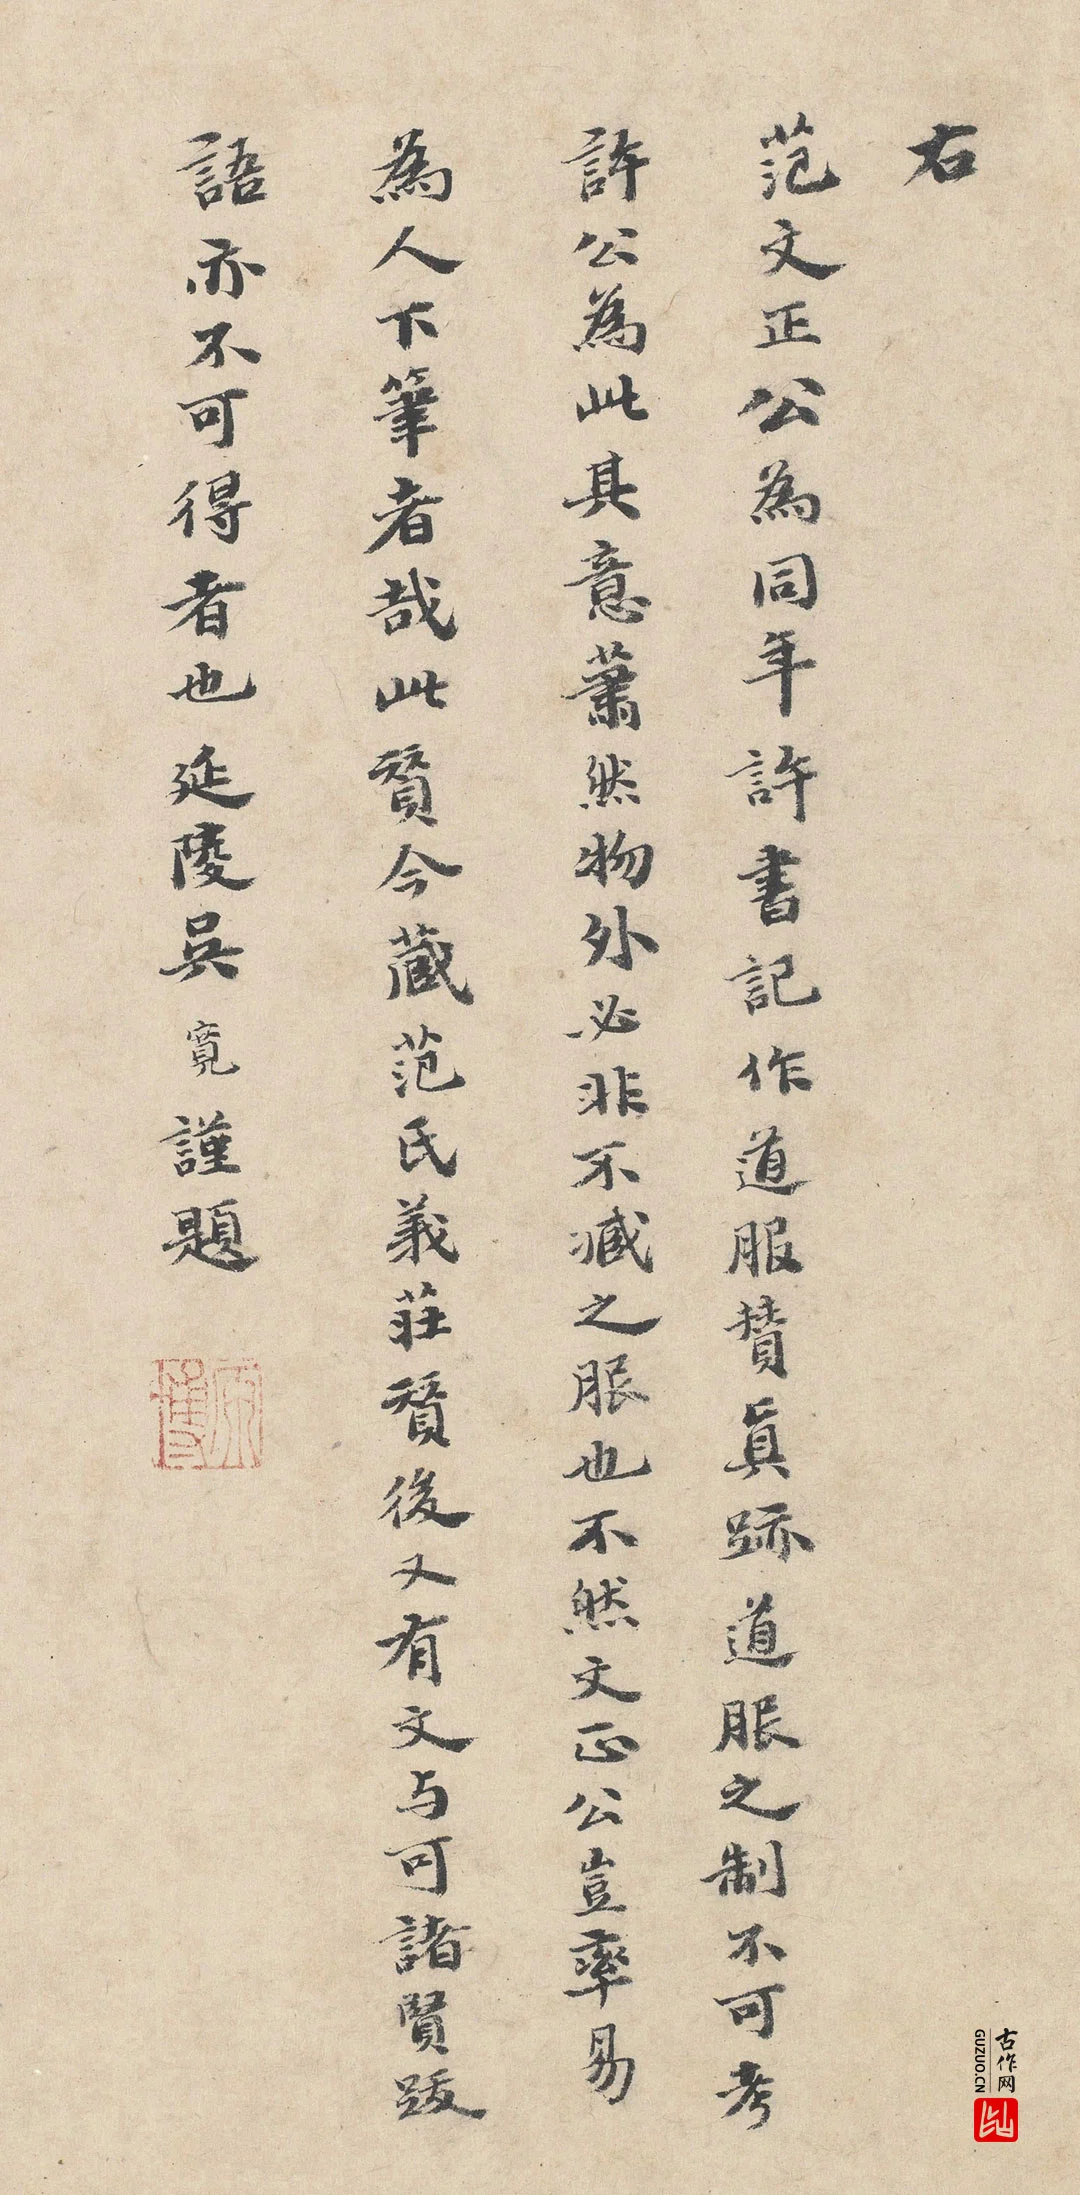 右
范文正公為同年許書記作道服賛真跡道服之制不可考
許公為此其意蕭然物外必非不臧之服也不然文正公豈率易
為人下筆者哉此賛今藏范氏義莊賛後又有文与可諸賢跋
語亦不可得者也延陵吳寬謹題
原博
古作网
GUZUO.CN